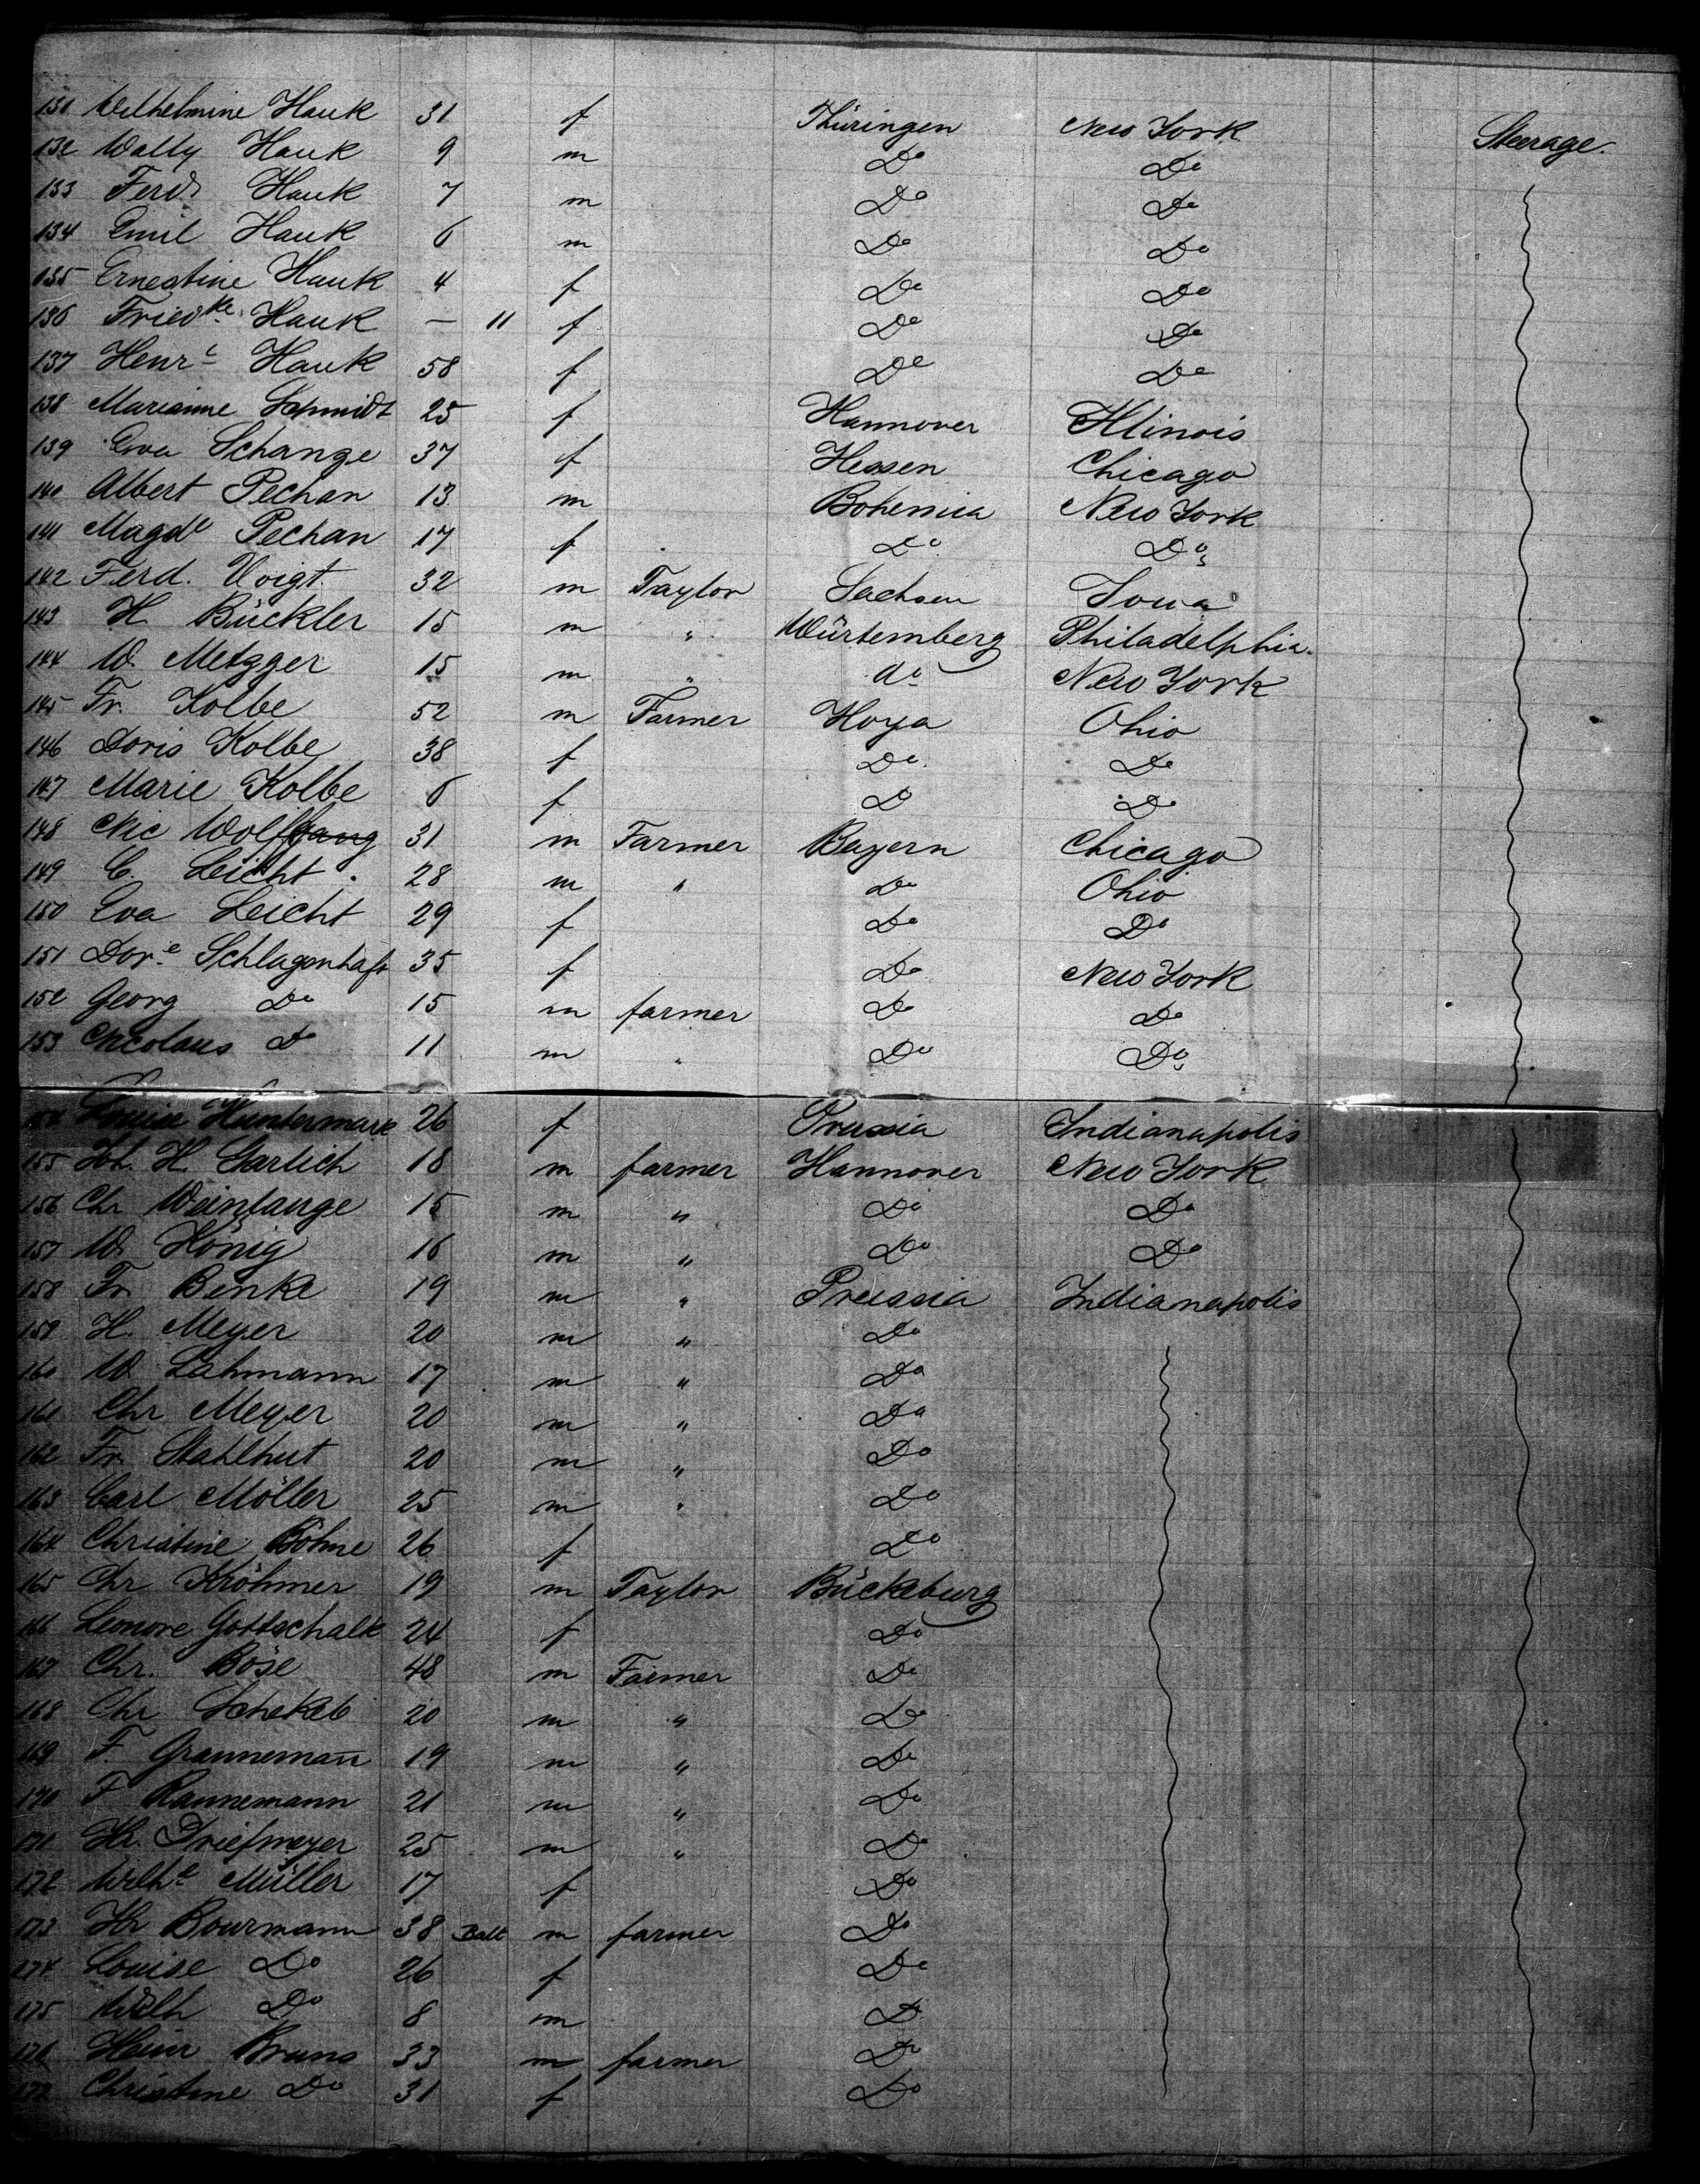 131 Wilhelmine Hauk 31 f Thüringen New York Steerage.
132 Wally Hauk 9 m Do Do
133 Ferd. Hauk 7 m Do Do
134 Emil Hauk 6 m Do Do
135 Ernestine Hauk 4 f Do Do
136 Friedke Hauk — 11 f Do Do
137 Henr.e Hauk 58 f Do Do
138 Marianne Schmidt 25 f Hannover Illinois
139 Eva Schange 37 f Hessen Chicago
140 Albert Pechan 13 m Bohemia New York
141 Magde Pechan 17 f Do Do
142 Ferd. Voigt 32 m Taylor Sachsen Iowa
143 H. Bückler 15 m " Würtemberg Philadelphia.
144 W. Metzger 15 m " do New York
145 Fr. Kolbe 52 m Farmer Hoya Ohio
146 Doris Kolbe 38 f Do Do
147 Marie Kolbe 6 f Do Do
148 Nic Wolffgang 31 m Farmer Bayern Chicago
149 C. Leicht 28 m " Do Ohio
150 Eva Leicht 29 f Do Do
151 Dor.e Schlagenhaft 35 f Do New York
152 Georg Do 15 m farmer Do Do
153 Nicolaus Do 11 m " Do Do
154 Louise Huntermark 26 f Prussia Indianapolis
155 Joh. H. Garlich 18 m farmer Hannover New York
156 Chr Weinlauge 15 m " Do Do
157 W. König 16 m " Do Do
158 Fr. Benke 19 m " Preussia Indianapolis
159 H. Meyer 20 m " Do
160 W. Lahmann 17 m " Do
161 Chr Meyer 20 m " Do
162 Fr. Stahlhut 20 m " Do
163 Carl Möller 25 m " Do
164 Christine Böhne 26 f Do
165 Chr Kröhmer 19 m Taylor Bückeburg
166 Leonore Gottschalk 24 f Do
167 Chr. Böse 48 m Farmer Do
168 Chr 20 m " Do
169 F. Grannemann 19 m " Do
170 F Rannemann 21 m " Do
171 Hr. Driefmeyer 25 m " Do
172 Wilh.e Müller 17 f Do
173 Hr Bourmann 38 Balt m farmer Do
174 Louise Do 26 f Do
175 Wilh Do 8 m Do
176 Heinr Bruns 33 m farmer Do
177 Christine Do 31 f Do